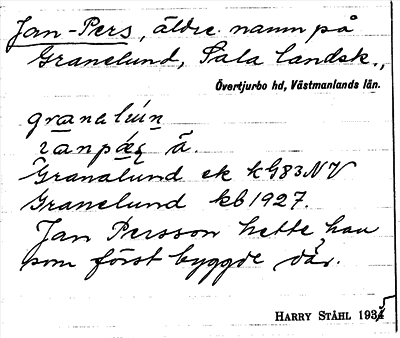 Jan-Pers, äldre namn på
Granelund, Sala landsk.,
Övertjurbo hd, Västmanlands län.
granalún
ä.
Granalund ek kG83NV
Granelund kb 1927.
Jan Persson hette han
som först byggde där.
HARRY STÅHL 1934